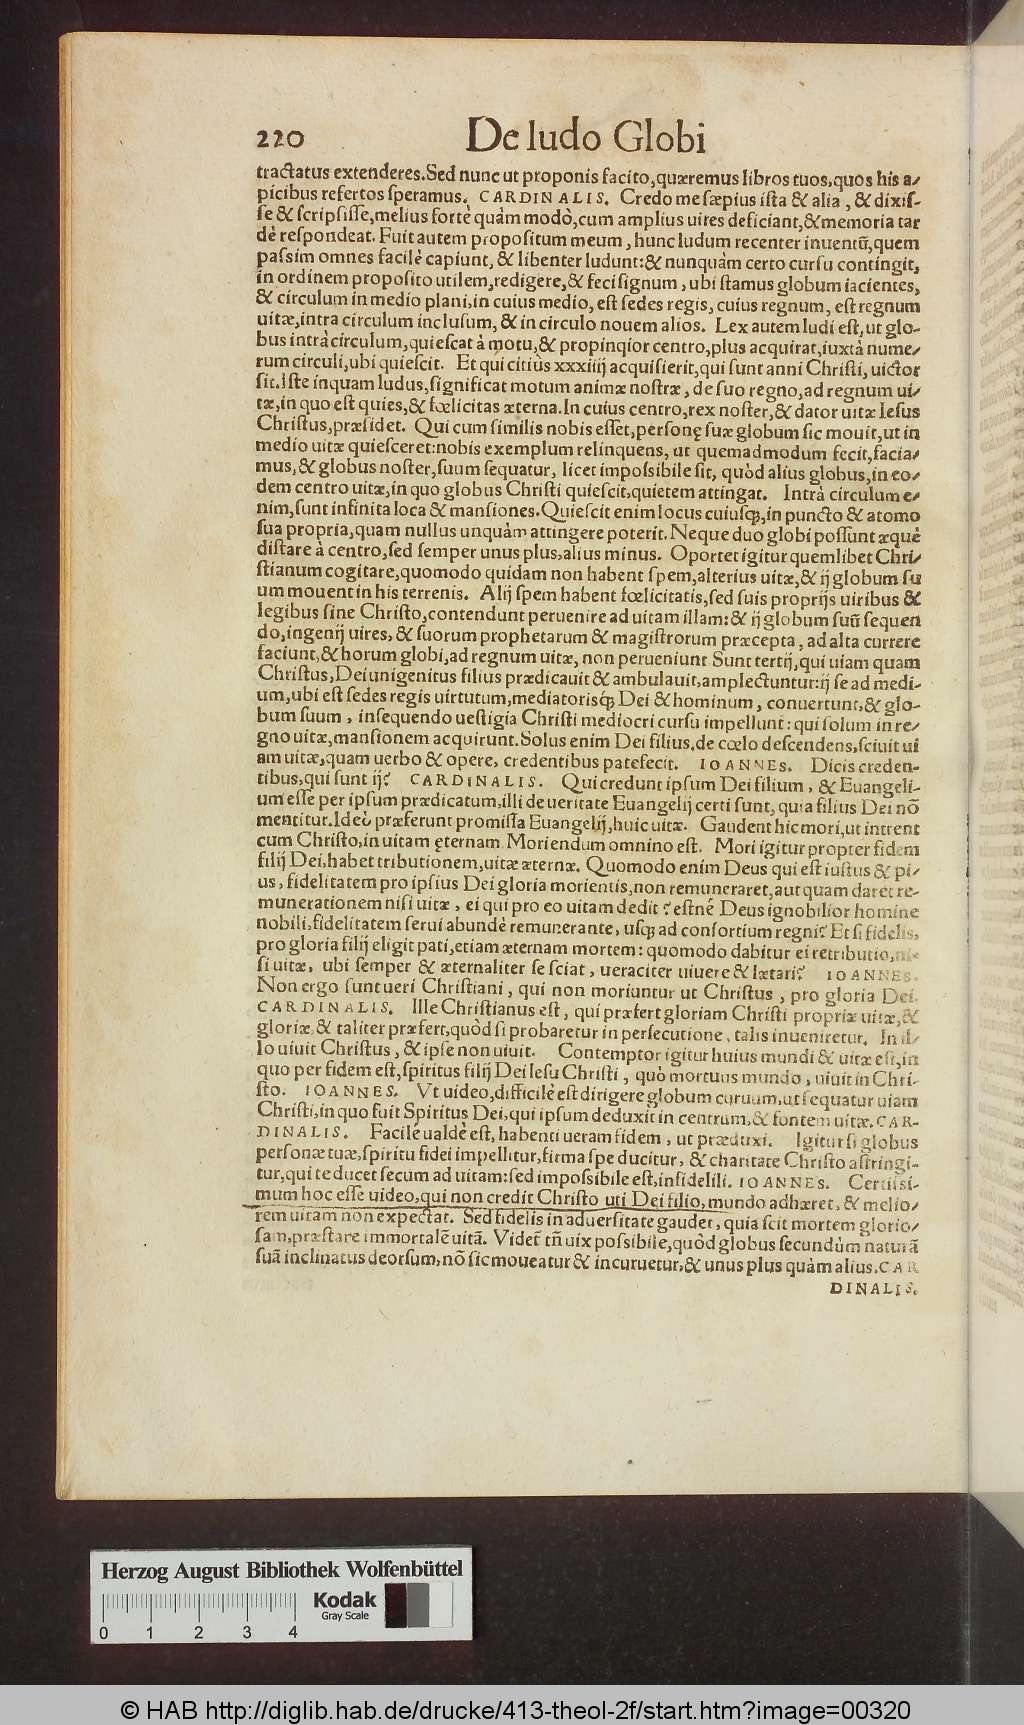 220 De ludo Globi
tractatus extenderes. Sed nunc ut proponis facito, quæremus libros tuos, quos his a/
picibus refertos speramus. CARDINALIS. Credo me sæpius ista & alia, & dixis-
se & scripsisse, melius fortè quàm modò, cum amplius uires deficiant, & memoria tar
dè respondeat. Fuit autem propositum meum, hunc ludum recenter inuentũ, quem
passim omnes facilè capiunt, & libenter ludunt: & nunquàm certo cursu contingit,
in ordinem proposito utilem, redigere, & feci signum, ubi stamus globum iacientes,
& circulum in medio plani, in cuius medio, est sedes regis, cuius regnum, est regnum
uitæ, intra circulum inclusum, & in circulo nouem alios. Lex autem ludi est, ut glo-
bus intrà circulum, quiescat à motu, & propinqior centro, plus acquirat, iuxtà nume/
rum circuli, ubi quiescit. Et qui citiùs xxxiiij acquisierit, qui sunt anni Christi, uictor
sit. Iste inquam ludus, significat motum animæ nostræ, de suo regno, ad regnum ui/
tæ, in quo est quies, & fœlicitas æterna. In cuius centro, rex noster, & dator uitæ Iesus
Christus, præsidet. Qui cum similis nobis esset, personę suæ globum sic mouit, ut in
medio uitæ quiesceret: nobis exemplum relinquens, ut quemadmodum fecit, facia/
mus, & globus noster, suum sequatur, licet impossibile sit, quòd alius globus, in eo/
dem centro uitæ, in quo globus Christi quiescit, quietem attingat. Intrà circulum e/
nim, sunt infinita loca & mansiones. Quiescit enim locus cuiusq;, in puncto & atomo
sua propria, quam nullus unquàm attingere poterit. Neque duo globi possunt æquè
distare à centro, sed semper unus plus, alius minus. Oportet igitur quemlibet Chri/
stianum cogitare, quomodo quidam non habent spem, alterius uitæ, & ij globum su
um mouent in his terrenis. Alij spem habent fœlicitatis, sed suis proprijs uiribus &
legibus sine Christo, contendunt peruenire ad uitam illam: & ij globum suũ sequen
do, ingenij uires, & suorum prophetarum & magistrorum præcepta, ad alta currere
faciunt, & horum globi, ad regnum uitæ, non perueniunt Sunt tertij, qui uiam quam
Christus, Dei unigenitus filius prædicauit & ambulauit, amplectuntur: ij se ad medi-
um, ubi est sedes regis uirtutum, mediatorisq; Dei & hominum, conuertunt, & glo-
bum suum, insequendo uestigia Christi mediocri cursu impellunt: qui solum in re/
gno uitæ, mansionem acquirunt. Solus enim Dei filius, de cœlo descendens, sciuit ui
am uitæ, quam uerbo & opere, credentibus patefecit. IOANNES. Dicis creden-
tibus, qui sunt ij? CARDINALIS. Qui credunt ipsum Dei filium, & Euangeli-
um esse per ipsum prædicatum, illi de ueritate Euangelij certi sunt, quia filius Dei nõ
mentitur. Ideò præferunt promissa Euangelij, huic uitæ. Gaudent hic mori, ut intrent
cum Christo, in uitam ęternam Moriendum omnino est. Mori igitur propter fidem
filij Dei, habet tributionem, uitæ æternæ. Quomodo enim Deus qui est iustus & pi/
us, fidelitatem pro ipsius Dei gloria morientis, non remuneraret, aut quam daret re-
munerationem nisi uitæ, ei qui pro eo uitam dedit? estné Deus ignobilior homine
nobili, fidelitatem serui abundè remunerante, usq; ad consortium regni? Et si fidelis,
pro gloria filij eligit pati, etiam æternam mortem: quomodo dabitur ei retributio, ni-
si uitæ, ubi semper & æternaliter se sciat, ueraciter uiuere & lætari? IOANNES.
Non ergo sunt ueri Christiani, qui non moriuntur ut Christus, pro gloria Dei.
CARDINALIS. Ille Christianus est, qui præfert gloriam Christi propriæ uitæ, &
gloriæ, & taliter præfert, quòd si probaretur in persecutione, talis inueniretur. In il/
lo uiuit Christus, & ipse non uiuit. Contemptor igitur huius mundi & uitæ est, in
quo per fidem est, spiritus filij Dei Iesu Christi, quò mortuus mundo, uiuit in Chri-
sto. IOANNES. Vt uideo, difficilè est dirigere globum curuum, ut sequatur uiam
Christi, in quo fuit Spiritus Dei, qui ipsum deduxit in centrum, & fontem uitæ. CAR-
DINALIS. Facilè ualdè est, habenti ueram fidem, ut præduxi. Igitur si globus
personæ tuæ, spiritu fidei impellitur, firma spe ducitur, & charitate Christo astringi-
tur, qui te ducet secum ad uitam: sed impossibile est, infidelili. IOANNES. Certissi-
mum hoc esse uideo, qui non credit Christo uti Dei filio, mundo adhæret, & melio/
rem uitam non expectat. Sed fidelis in aduersitate gaudet, quia scit mortem glorio/
sam, præstare immortalẽ uitã. Videt tñ uix possibile, quòd globus secundùm naturã
suã inclinatus deorsum, nõ sic moueatur & incuruetur, & unus plus quàm alius. CAR
DINALIS.
Herzog August Bibliothek Wolfenbüttel
Kodak
Gray Scale
0 1 2 3 4
© HAB http://diglib.hab.de/drucke/413-theol-2f/start.htm?image=00320